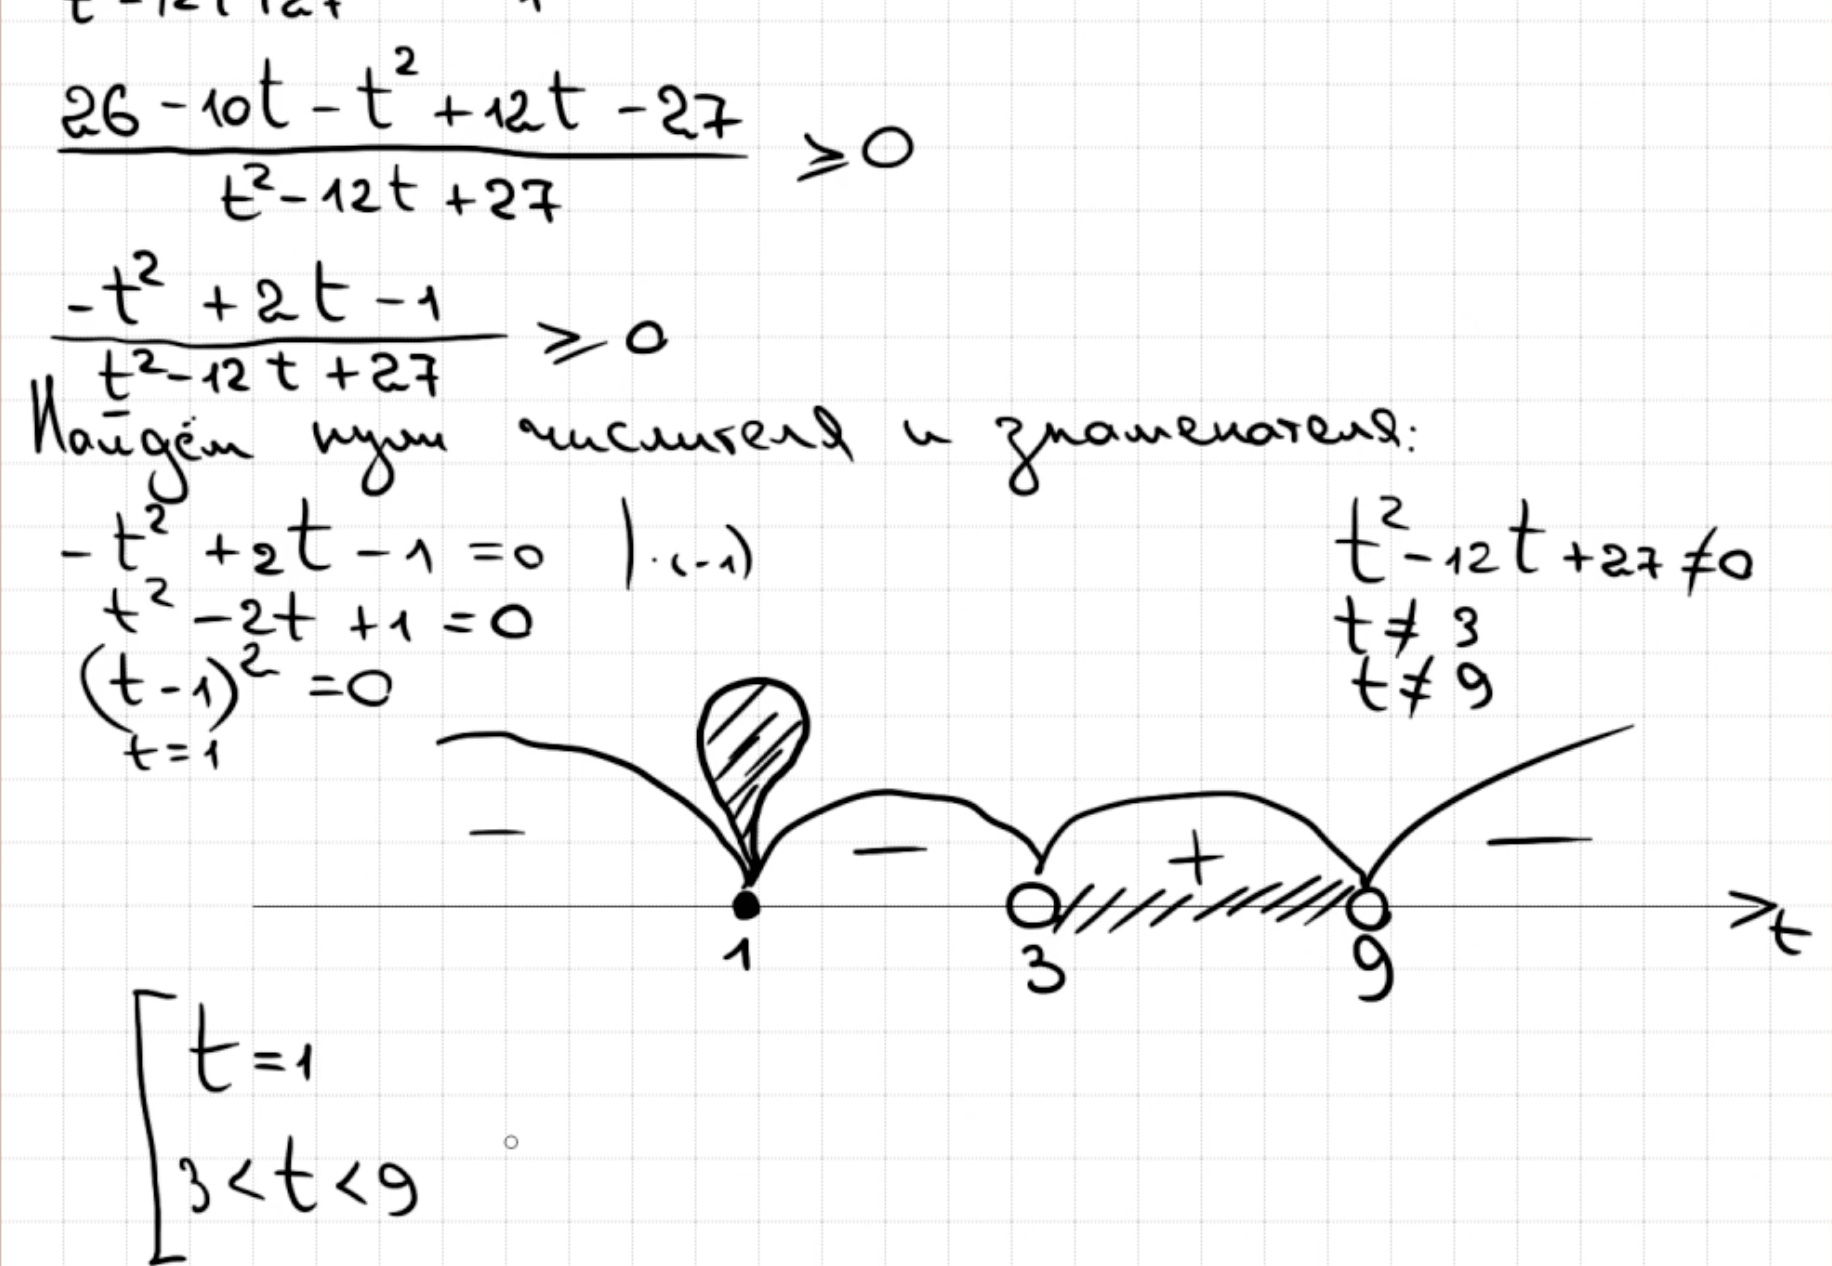 26 - 10t - t² + 12t - 27
t² - 12t + 27
≥ 0
-t² + 2t - 1
t² - 12t + 27
≥ 0
Найдём нули числителя и знаменателя:
-t² + 2t - 1 = 0 | · (-1)
t² - 2t + 1 = 0
(t - 1)² = 0
t = 1
t² - 12t + 27 ≠ 0
t ≠ 3
t ≠ 9
- - + -
1 3 9 t
[ t = 1
3 < t < 9